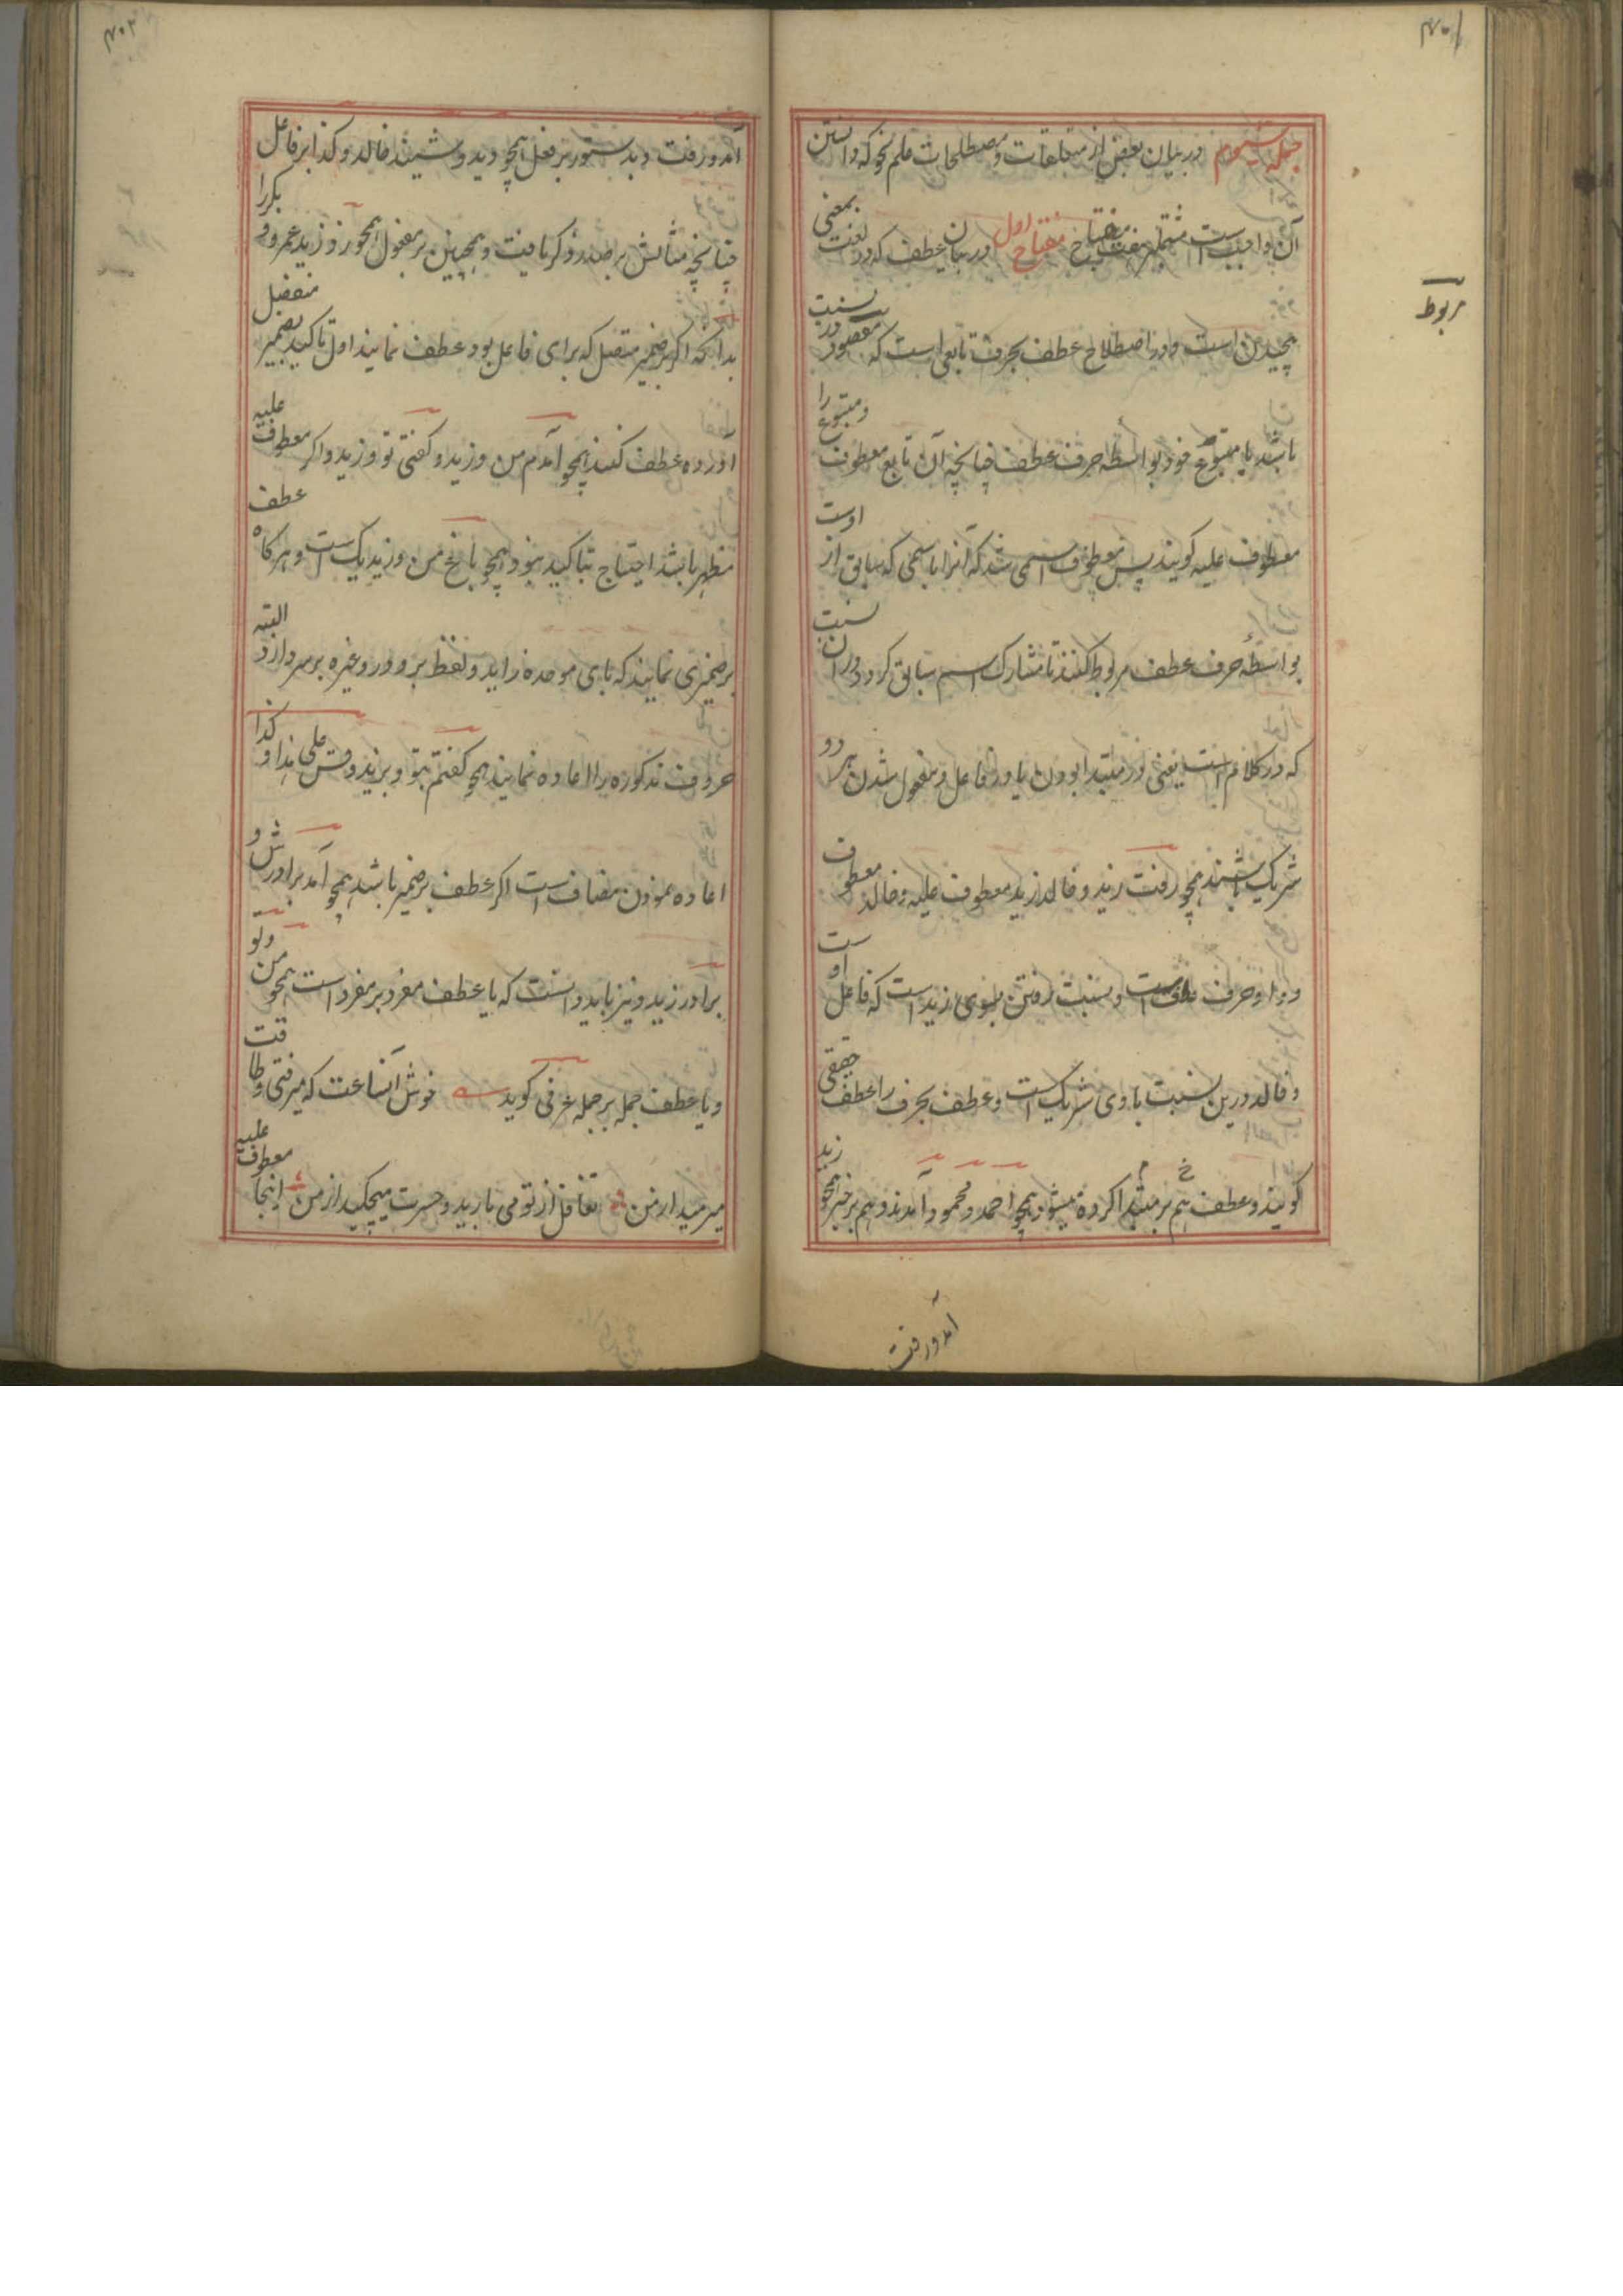 ۴۰۱
جمله سیوم در بیان بعضی از متعلقات و مصطلحات علم نحو که دانستن
آن واجبست مشتملبر هفت مفتاح مفتاح اول در بیان عطف که در لغت بمعنی
پیچیدن است و در اصطلاح عطف بحرف تابعی است که مقصود در نسبت
باشد با متبوع خود بواسطه حرف عطف چنانچه آن تابع معطوف و متبوع را
معطوف علیه گویند پس معطوف اسمی شد که آنرا باسمی که سابق از اوست
بواسطهٔ حرف عطف مربوط کنند تا مشارک اسم سابق گردد در ان نسبت
که در کلام است یعنی در مبتدا بودن یا در فاعل و مفعول شدن هر دو
شریک باشند همچو رفت زید و خالد زید معطوف علیه و خالد معطوف
و واو حرف عطف است و نسبت رفتن بسوی زید است که فاعل اوست
و خالد درین نسبت با وی شریک است و عطف بحرف را عطف حقیقی
گویند و عطف هم بر مبتدا کرده میشود همچو احمد و محمود آمدند و هم بر خبر همچو زید
آمد و رفت
مربوط
۴۰۲
آمد و رفت و بدستور بر فعل همچو دید و شنید خالد و کذا بر فاعل
چنانچه مثالش بر صدر ذکر یافت و همچنین بر مفعول همچو زد زید عمرو و بکر را
بدانکه اگر بر ضمیر متصل که برای فاعل بود عطف نمایند اول تاکید بضمیر منفصل
آورده عطف کنند همچو آمدم من و زید و گفتی تو و زید و اگر معطوف علیه
مظهر باشد احتیاج بتاکید نبود همچو باغ من و زید یک است و هرگاه عطف
بر ضمیری نمایند که بای موحده زاید و لفظ بر و در و غیره بر سر دارد البته
حروف مذکوره را اعاده نمایند همچو گفتم بتو و بزید و قس علی هذا و کذا
اعاده نمودن مضاف است اگر عطف بر ضمیر باشد همچو آمد برادرش و
برادر زید و نیز باید دانست که یا عطف مفرد بر مفرد است همچو من و تو
و یا عطف جمله بر جمله عرفی گوید خوش آنساعت که میرفتی و طاقت
میرمید از من تغافل از تو می بارید و حسرت میچکید از من اینجا معطوف علیه